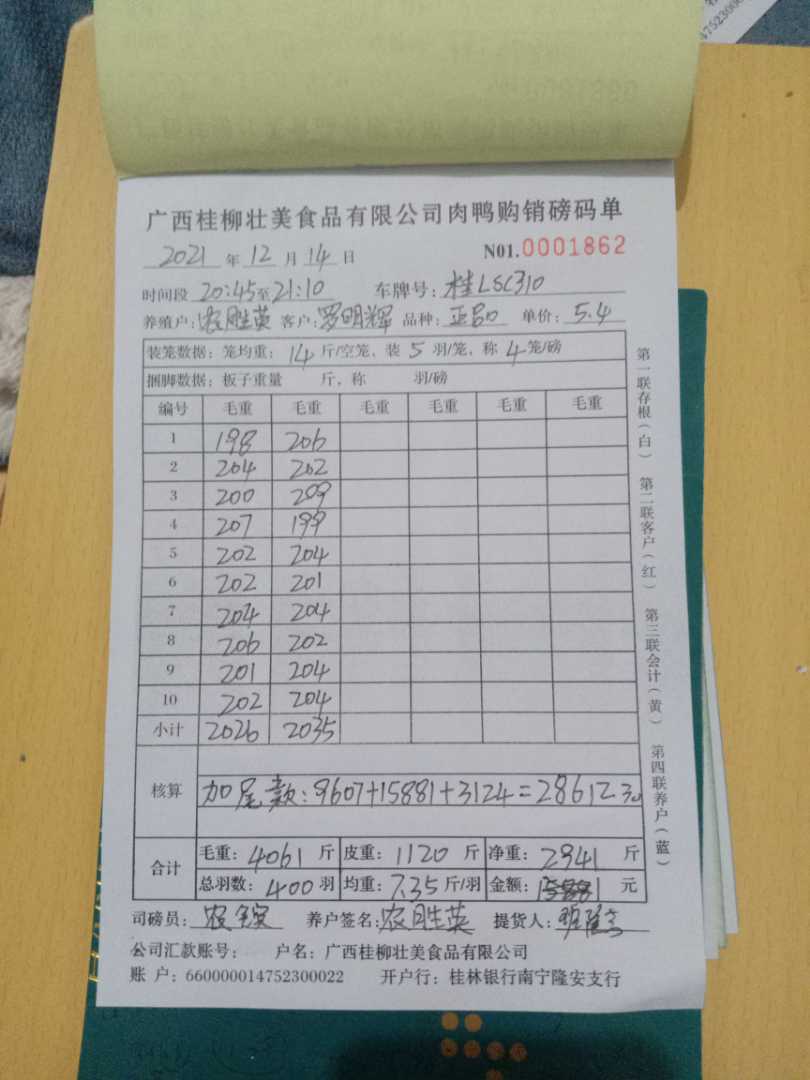 广西桂柳壮美食品有限公司肉鸭购销磅码单
2021 年 12 月 14 日 N01.0001862
时间段 20:45至21:10 车牌号: 桂LSC310
养殖户: 农胜英 客户: 罗明辉 品种: 正品 单价: 5.4
装笼数据: 笼均重: 14 斤/空笼, 装 5 羽/笼, 称 4 笼/磅
捆脚数据: 板子重量 斤, 称 羽/磅
编号 毛重 毛重 毛重 毛重 毛重 毛重
1 198 206
2 204 202
3 200 209
4 207 199
5 202 204
6 202 201
7 204 204
8 206 202
9 201 204
10 202 204
小计 2026 2035
核算 加尾款: 9607+15881+3124=28612元
合计 毛重: 4061 斤 皮重: 1120 斤 净重: 2941 斤
总羽数: 400 羽 均重: 7.35 斤/羽 金额: 15881 元
司磅员: 养户签名: 农胜英 提货人:
公司汇款账号: 户名: 广西桂柳壮美食品有限公司
账 户: 660000014752300022 开户行: 桂林银行南宁隆安支行
第一联存根(白) 第二联客户(红) 第三联会计(黄) 第四联养户(蓝)